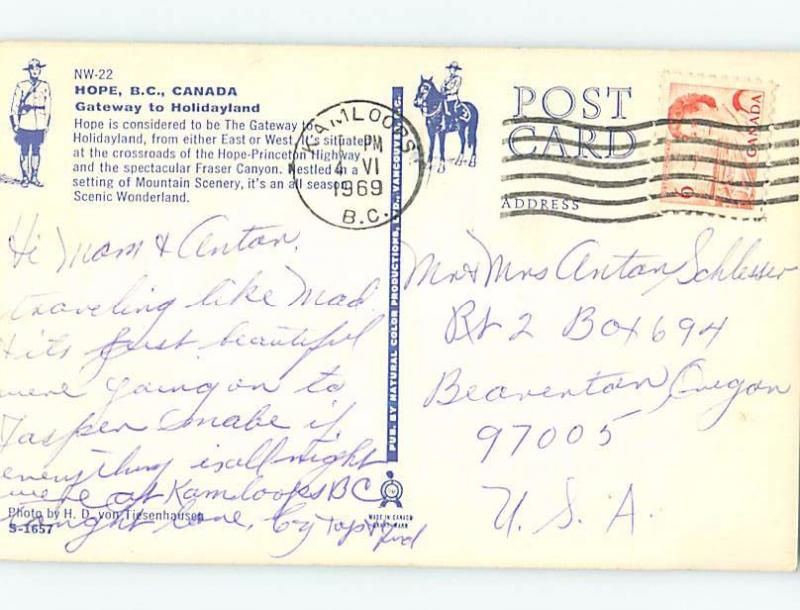 NW-22
HOPE, B.C., CANADA
Gateway to Holidayland
Hope is considered to be The Gateway to
Holidayland, from either East or West. It's situated
at the crossroads of the Hope-Princeton Highway
and the spectacular Fraser Canyon. Nestled in a
setting of Mountain Scenery, it's an all season
Scenic Wonderland.
KAMLOOPS
PM
4 VI
1969
B.C.
POST
CARD
ADDRESS
CANADA
6
PUB. BY NATURAL COLOR PRODUCTIONS, LTD., VANCOUVER, B.C.
Hi Mom & Anton,
traveling like mad
+ its just beautiful
were going on to
Jasper mabe if
everything is all right
were at Kamloops BC
tonight love, by
Photo by H. D. von Tiesenhausen
S-1657
MADE IN CANADA
Mr & Mrs Anton Schlesser
Rt 2 Box 694
Beaverton, Oregon
97005
U. S. A.